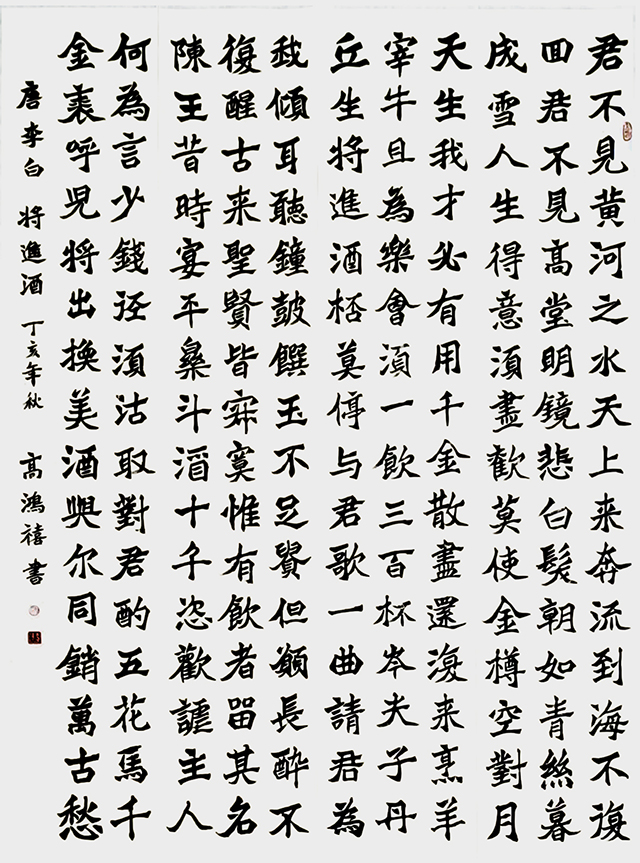 君不見黄河之水天上来奔流到海不復
回君不見高堂明鏡悲白髮朝如青絲暮
成雪人生得意須盡歡莫使金樽空對月
天生我才必有用千金散盡還復来烹羊
宰牛且為樂會須一飲三百杯岑夫子丹
丘生將進酒桮莫停与君歌一曲請君為
我傾耳聽鐘鼓饌玉不足貴但願長醉不
復醒古来聖賢皆寂寞惟有飲者留其名
陳王昔時宴平樂斗酒十千恣歡謔主人
何為言少錢徑須沽取對君酌五花馬千
金裘呼兒將出換美酒與尔同銷萬古愁
唐李白 將進酒 丁亥年秋 高鴻禧書